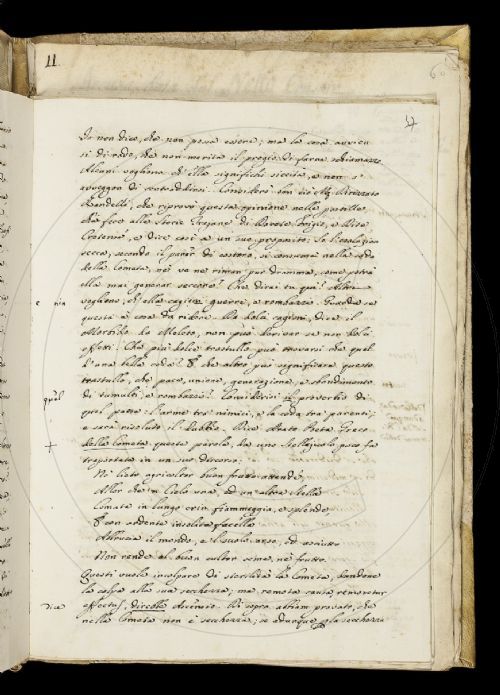 11.
Io non dico, che non possa essere; ma la cosa avvien
si di rado, che non merita il pregio di farne schiamazzo.
Alcuni vogliono ch'ella significhi siccità, e non s'
avveggon di contraddirsi. Consideri ben ciò Mg.
Bandelli, che riprovò questa opinione nelle postille
che fece alle Storie Troiane di Darete Frigio, e Dite
Cretense, e dice così a un suo proposito. Se l'esalazion
secca, secondo il parer di costoro, si consuma nella coda
della Cometa, nè va ne riman pur dramma, come potrà
ella mai generar seccore? Che dirai tu qui? Altri
vogliono, ch'ella cagioni guerre, e rombazzi. Guarda se
questa è cosa da ridere. Da bella cagione, dice il
Morbido da Meleto, non può derivar se non belli
effetti. Che più dolce trastullo può trovarsi che quel
d'una bella coda? E che altro può significare questo
trastullo, che pace, unione, generazione, e sbandimento
di tumulti, e rombazzi? Consideresi il proverbio di
quel poeta: L'arme tra nimici, e la coda tra parenti;
e sarà risoluto il dubbio. Dice Prete Greco
della Cometa questa parola, da uno poco fa
trasportata in un suo discorso.
Nè lieto agricoltor buon frutto attende,
Allor che in Cielo una, ed un'altra stella
Cometa in lungo crin fiammeggia, e splende
E con ardente insolita facella
Abbrucia il mondo, e il suolo arso, ed asciutto
Non rende al buon cultor seme, nè frutto.
Questi vuole incolpare di sterilità la Cometa, dandone
la colpa alla sua secchezza; ma remota causa, removetur
effectus, direbbe Di sopra abbiam provato, che
nella Cometa non è secchezza; se adunque la secchezza
e nia
quel
+
dice